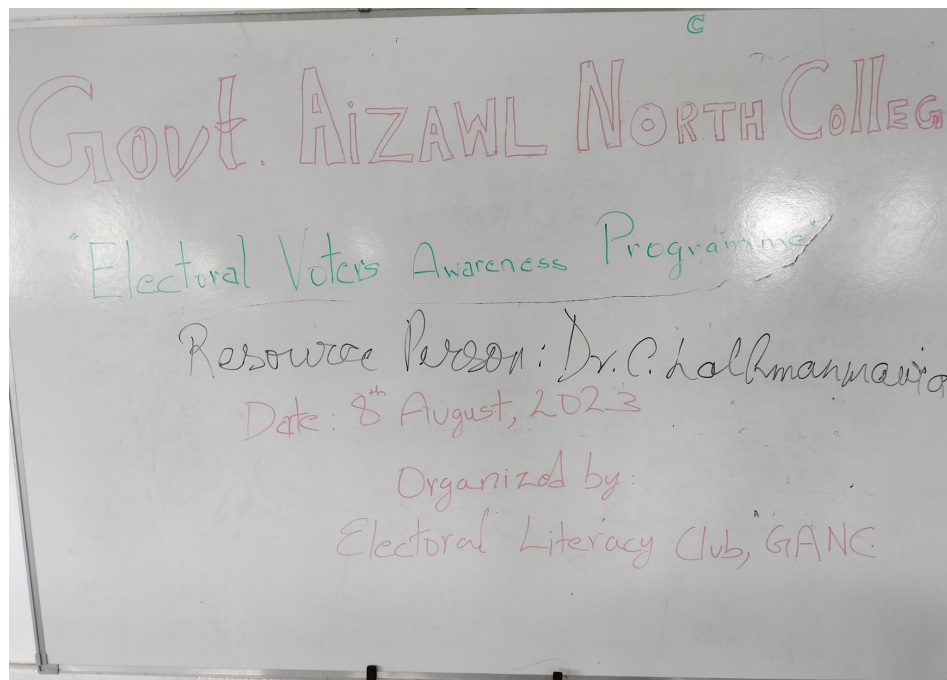 C
Govt. AIZAWL NORTH COllEG
"Electoral Voters Awareness Programme"
Resource Person: Dr. C. Lalhmanmawia
Date: 8th August, 2023
Organized by:
Electoral Literacy Club, GANC